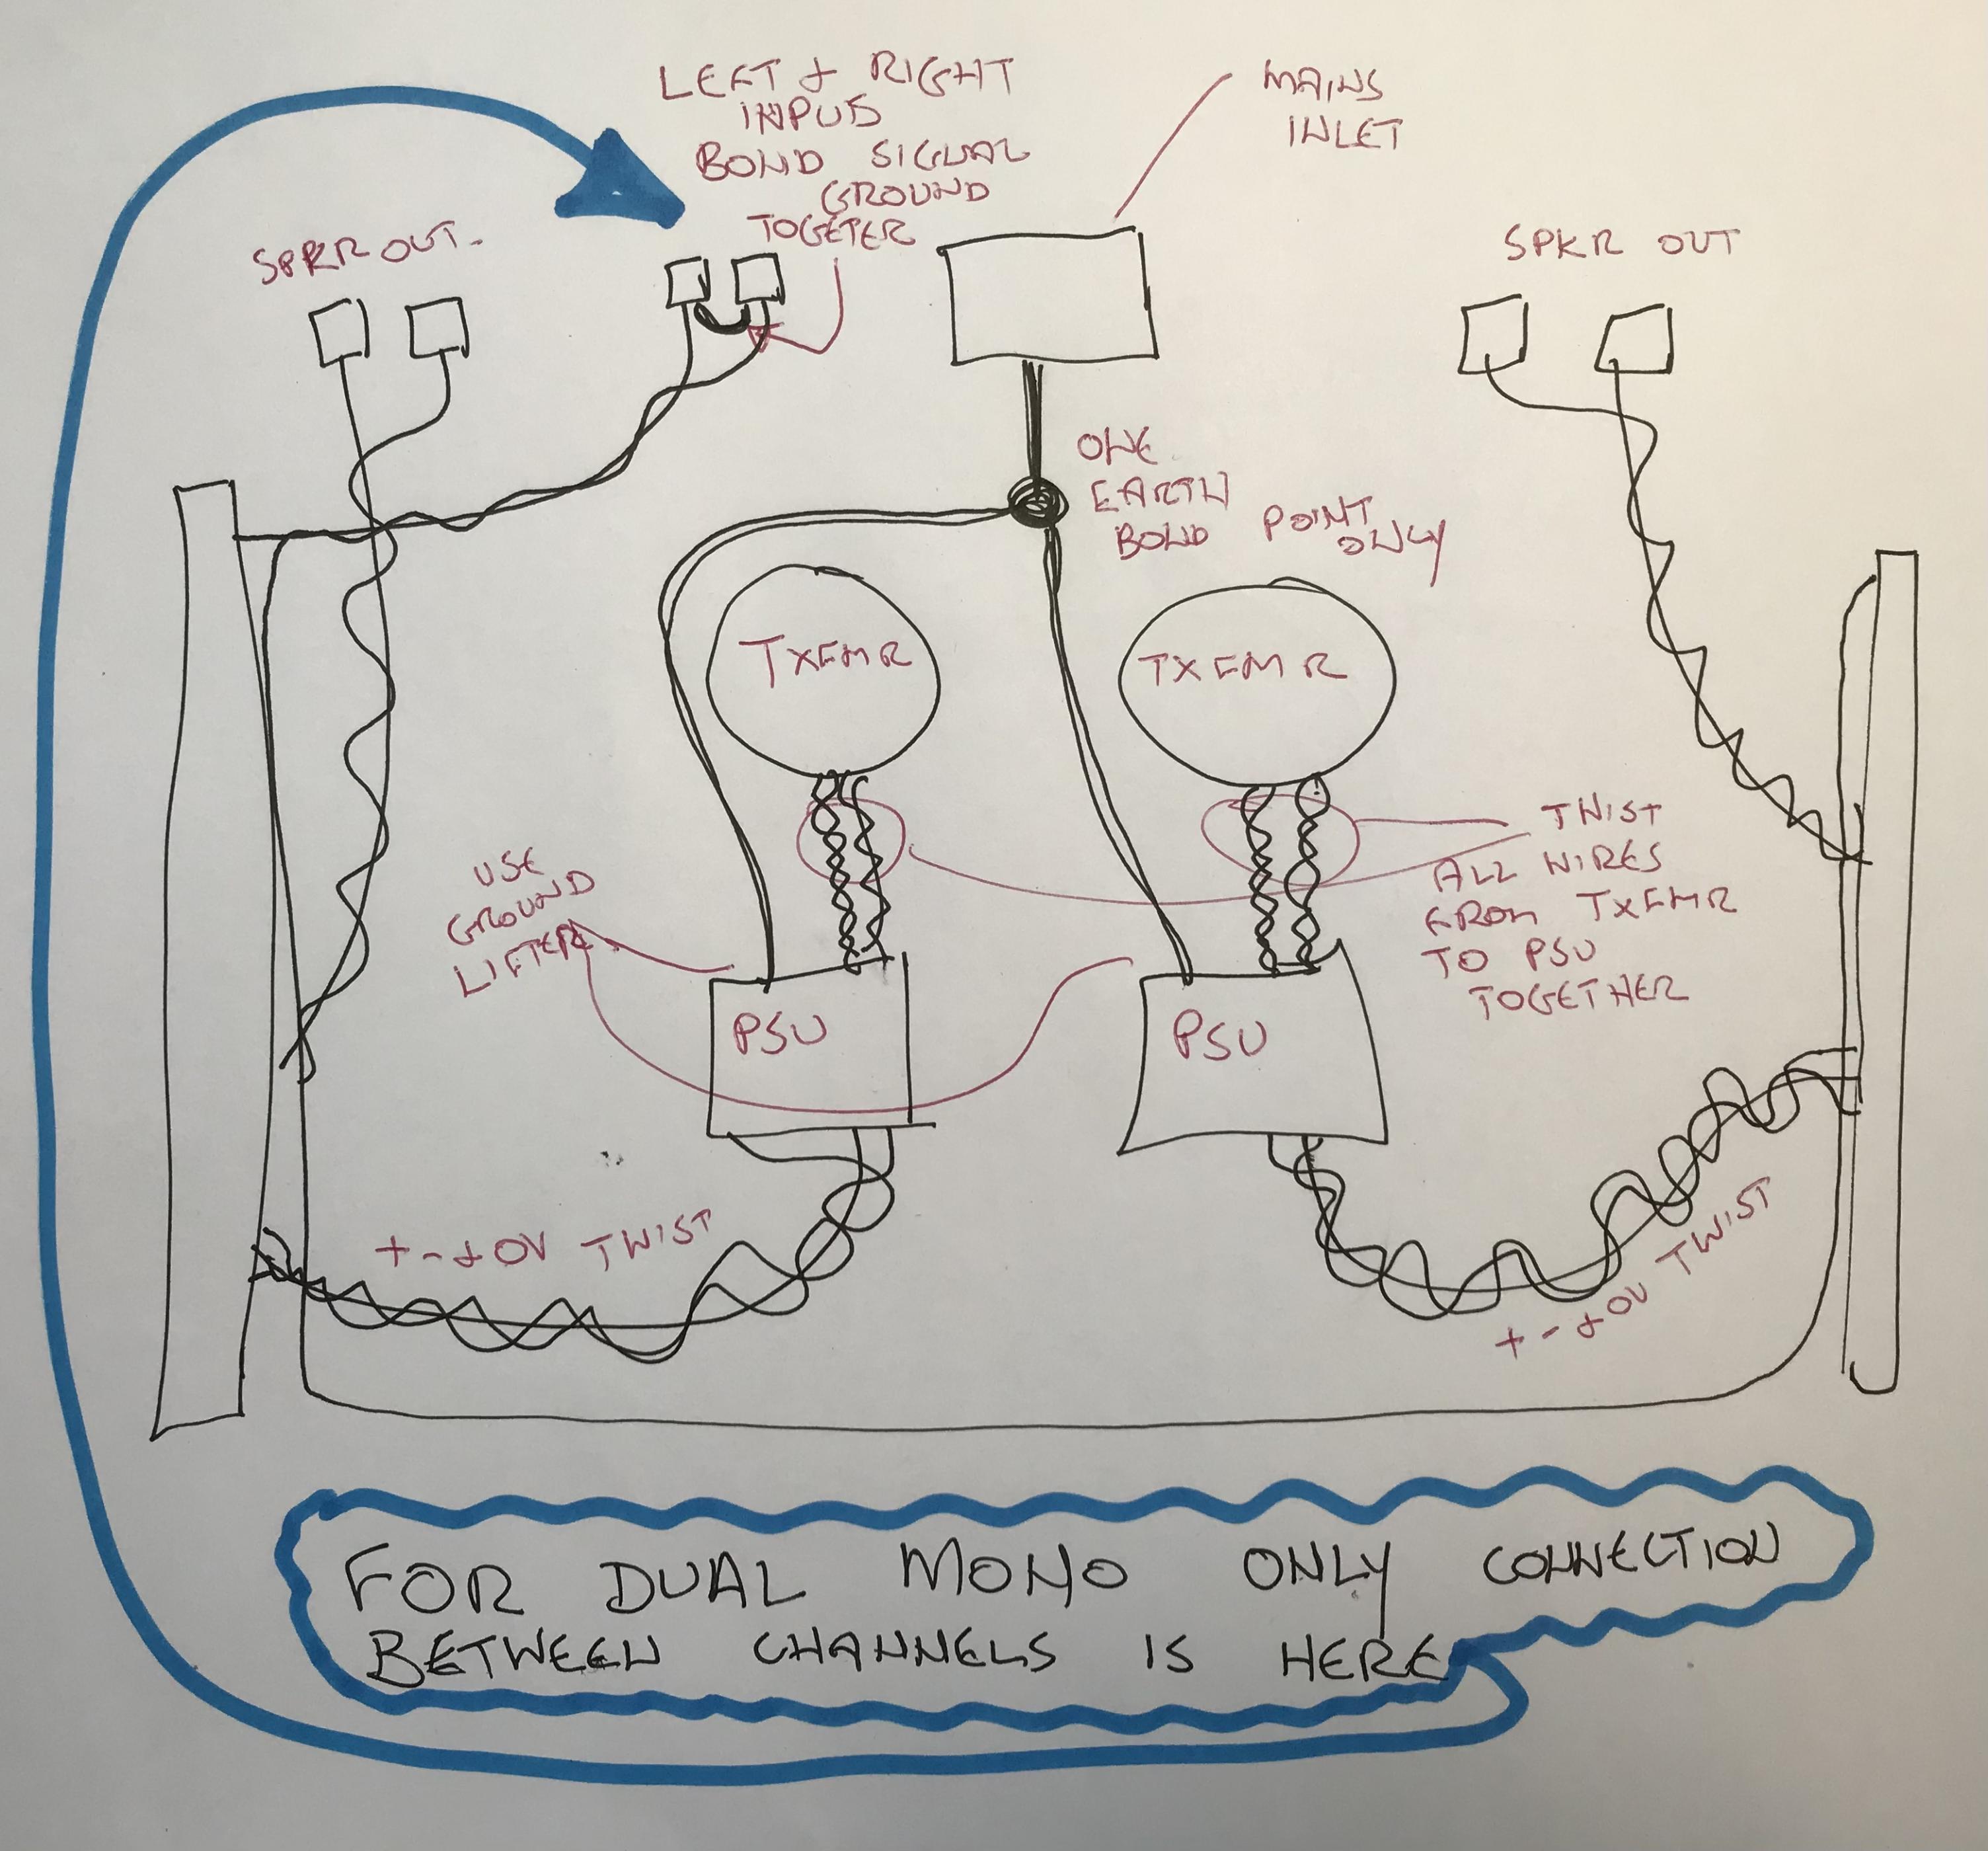 LEFT & RIGHT
INPUS
BOND SIGNAL
GROUND
TOGETER
MAINS
INLET
SPKR OUT
SPKR OUT
ONE
EARTH
BOND POINT
ONLY
TXFMR
TXFMR
USE
GROUND
LIFTER
TWIST
ALL WIRES
FROM TXFMR
TO PSU
TOGETHER
PSU
PSU
+ - & 0V TWIST
+ - & 0V TWIST
FOR DUAL MONO ONLY CONNECTION
BETWEEN CHANNELS IS HERE